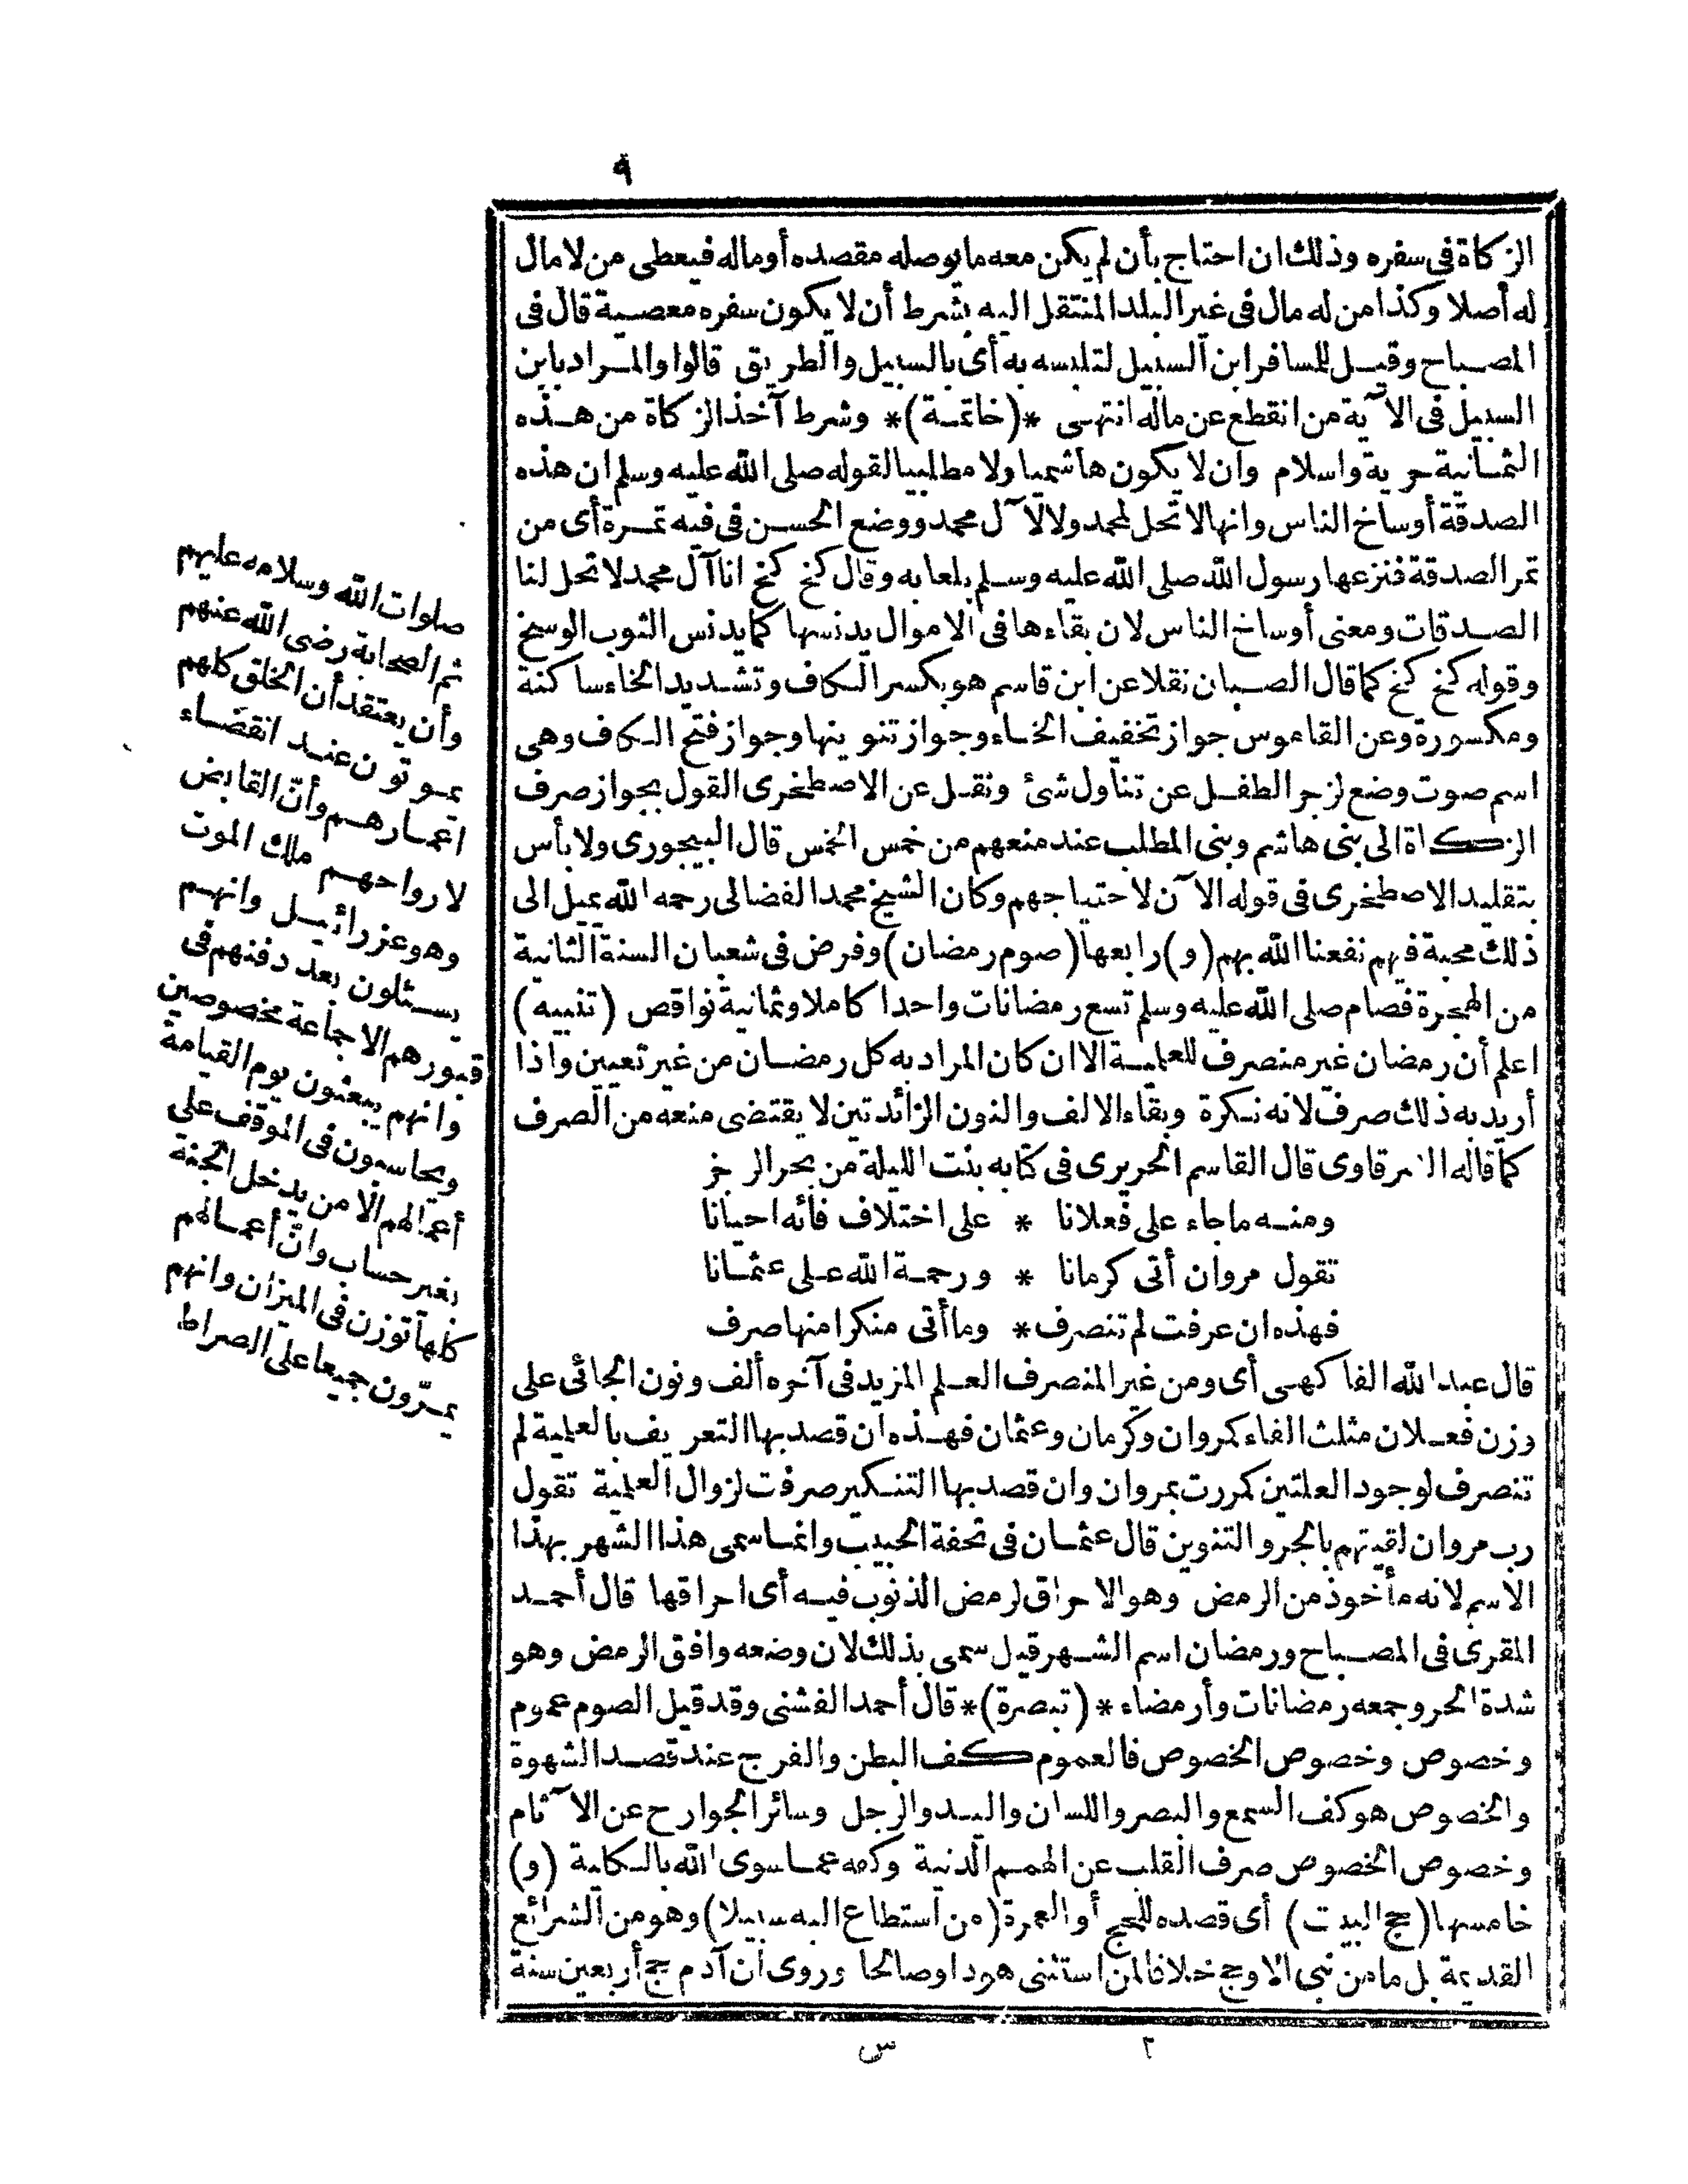 ٩
الزكاة فى سفره وذلك ان احتاج بأن لم يكن معه ما يوصله مقصده أو ماله فيعطى من لا مال
له أصلا وكذا من له مال فى غير البلد المنتقل اليه بشرط أن لا يكون سفره معصية قال فى
المصباح وقيل للمسافر ابن السبيل لتلبسه به أى بالسبيل والطريق قالوا والمراد بابن
السبيل فى الآية من انقطع عن ماله انتهى *(خاتمة)* وشرط آخذ الزكاة من هذه
الثمانية حرية واسلام وان لا يكون هاشميا ولا مطلبيا لقوله صلى الله عليه وسلم ان هذه
الصدقة أوساخ الناس وانها لا تحل لمحمد ولا لآل محمد ووضع الحسن فى فيه تمرة أى من
تمر الصدقة فنزعها رسول الله صلى الله عليه وسلم بلعابه وقال كخ كخ انا آل محمد لا تحل لنا
الصدقات ومعنى أوساخ الناس لان بقاءها فى الاموال يدنسها كما يدنس الثوب الوسخ
وقوله كخ كخ كما قال الصبان نقلا عن ابن قاسم هو بكسر الكاف وتشديد الخاء ساكنة
ومكسورة وعن القاموس جواز تخفيف الخاء وجواز تنوينها وجواز فتح الكاف وهى
اسم صوت وضع لزجر الطفل عن تناول شئ ونقل عن الاصطخرى القول بجواز صرف
الزكاة الى بنى هاشم وبنى المطلب عند منعهم من خمس الخمس قال البيجورى ولا بأس
بتقليد الاصطخرى فى قوله الآن لاحتياجهم وكان الشيخ محمد الفضالى رحمه الله يميل الى
ذلك محبة فيهم نفعنا الله بهم (و) رابعها (صوم رمضان) وفرض فى شعبان السنة الثانية
من الهجرة فصام صلى الله عليه وسلم تسع رمضانات واحدا كاملا وثمانية نواقص (تنبيه)
اعلم أن رمضان غير منصرف للعلمية الا ان كان المراد به كل رمضان من غير تعيين واذا
أريد به ذلك صرف لانه نكرة وبقاء الالف والنون الزائدتين لا يقتضى منعه من الصرف
كما قاله الشرقاوى قال القاسم الحريرى فى كتابه بنت الليلة من بحر الرجز
ومنه ما جاء على فعلانا * على اختلاف فائه احيانا
تقول مروان أتى كرمانا * ورحمة الله على عثمانا
فهذه ان عرفت لم تنصرف * وما أتى منكرا منها صرف
قال عبد الله الفاكهى أى ومن غير المنصرف العلم المزيد فى آخره ألف ونون الجائى على
وزن فعلان مثلث الفاء كمروان وكرمان وعثمان فهذه ان قصد بها التعريف بالعلمية لم
تنصرف لوجود العلتين كمررت بمروان وان قصد بها التنكير صرفت لزوال العلمية تقول
رب مروان لقيتهم بالجر والتنوين قال عثمان فى تحفة الحبيب وانما سمى هذا الشهر بهذا
الاسم لانه مأخوذ من الرمض وهو الاحراق لرمض الذنوب فيه أى احراقها قال أحمد
المقرى فى المصباح ورمضان اسم الشهر قيل سمى بذلك لان وضعه وافق الرمض وهو
شدة الحر وجمعه رمضانات وأرمضاء *(تبصرة)* قال أحمد الفشنى وقد قيل الصوم عموم
وخصوص وخصوص الخصوص فالعموم كف البطن والفرج عند قصد الشهوة
والخصوص هو كف السمع والبصر واللسان واليد والرجل وسائر الجوارح عن الآثام
وخصوص الخصوص صرف القلب عن الهمم الدنية وكفه عما سوى الله بالكلية (و)
خامسها (حج البيت) أى قصده للحج أو العمرة (من استطاع اليه سبيلا) وهو من الشرائع
القديمة بل ما من نبى الا وحج خلافا لمن استثنى هودا وصالحا وروى ان آدم حج أربعين سنة
صلوات الله وسلامه عليهم
ثم الصحابة رضى الله عنهم
وأن يعتقد أن الخلق كلهم
يموتون عند انقضاء
اعمارهم وأن القابض
لارواحهم ملك الموت
وهو عزرائيل وانهم
يسئلون بعد دفنهم فى
قبورهم الا جماعة مخصوصين
وانهم يبعثون يوم القيامة
ويحاسبون فى الموقف على
أعمالهم الا من يدخل الجنة
بغير حساب وانّ أعمالهم
كلها توزن فى الميزان وانهم
يمرّون جميعا على الصراط
٢ س